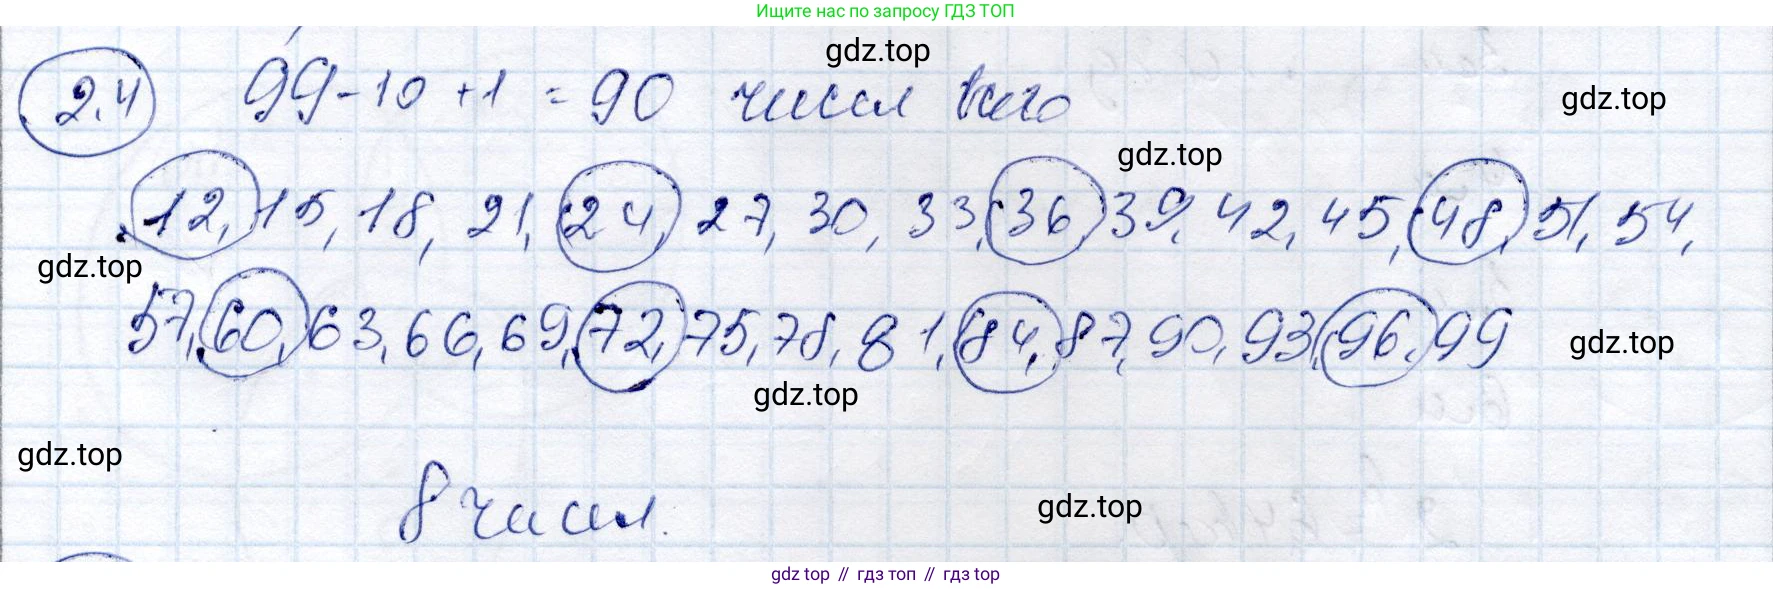 Ищите нас по запросу ГДЗ ТОП
gdz.top
2.4 99-10+1=90 чисел всего
gdz.top
gdz.top
12, 15, 18, 21, 24, 27, 30, 33, 36, 39, 42, 45, 48, 51, 54,
gdz.top
57, 60, 63, 66, 69, 72, 75, 78, 81, 84, 87, 90, 93, 96, 99
gdz.top
gdz.top
gdz.top
8 чисел.
gdz.top
gdz top // гдз топ // gdz top